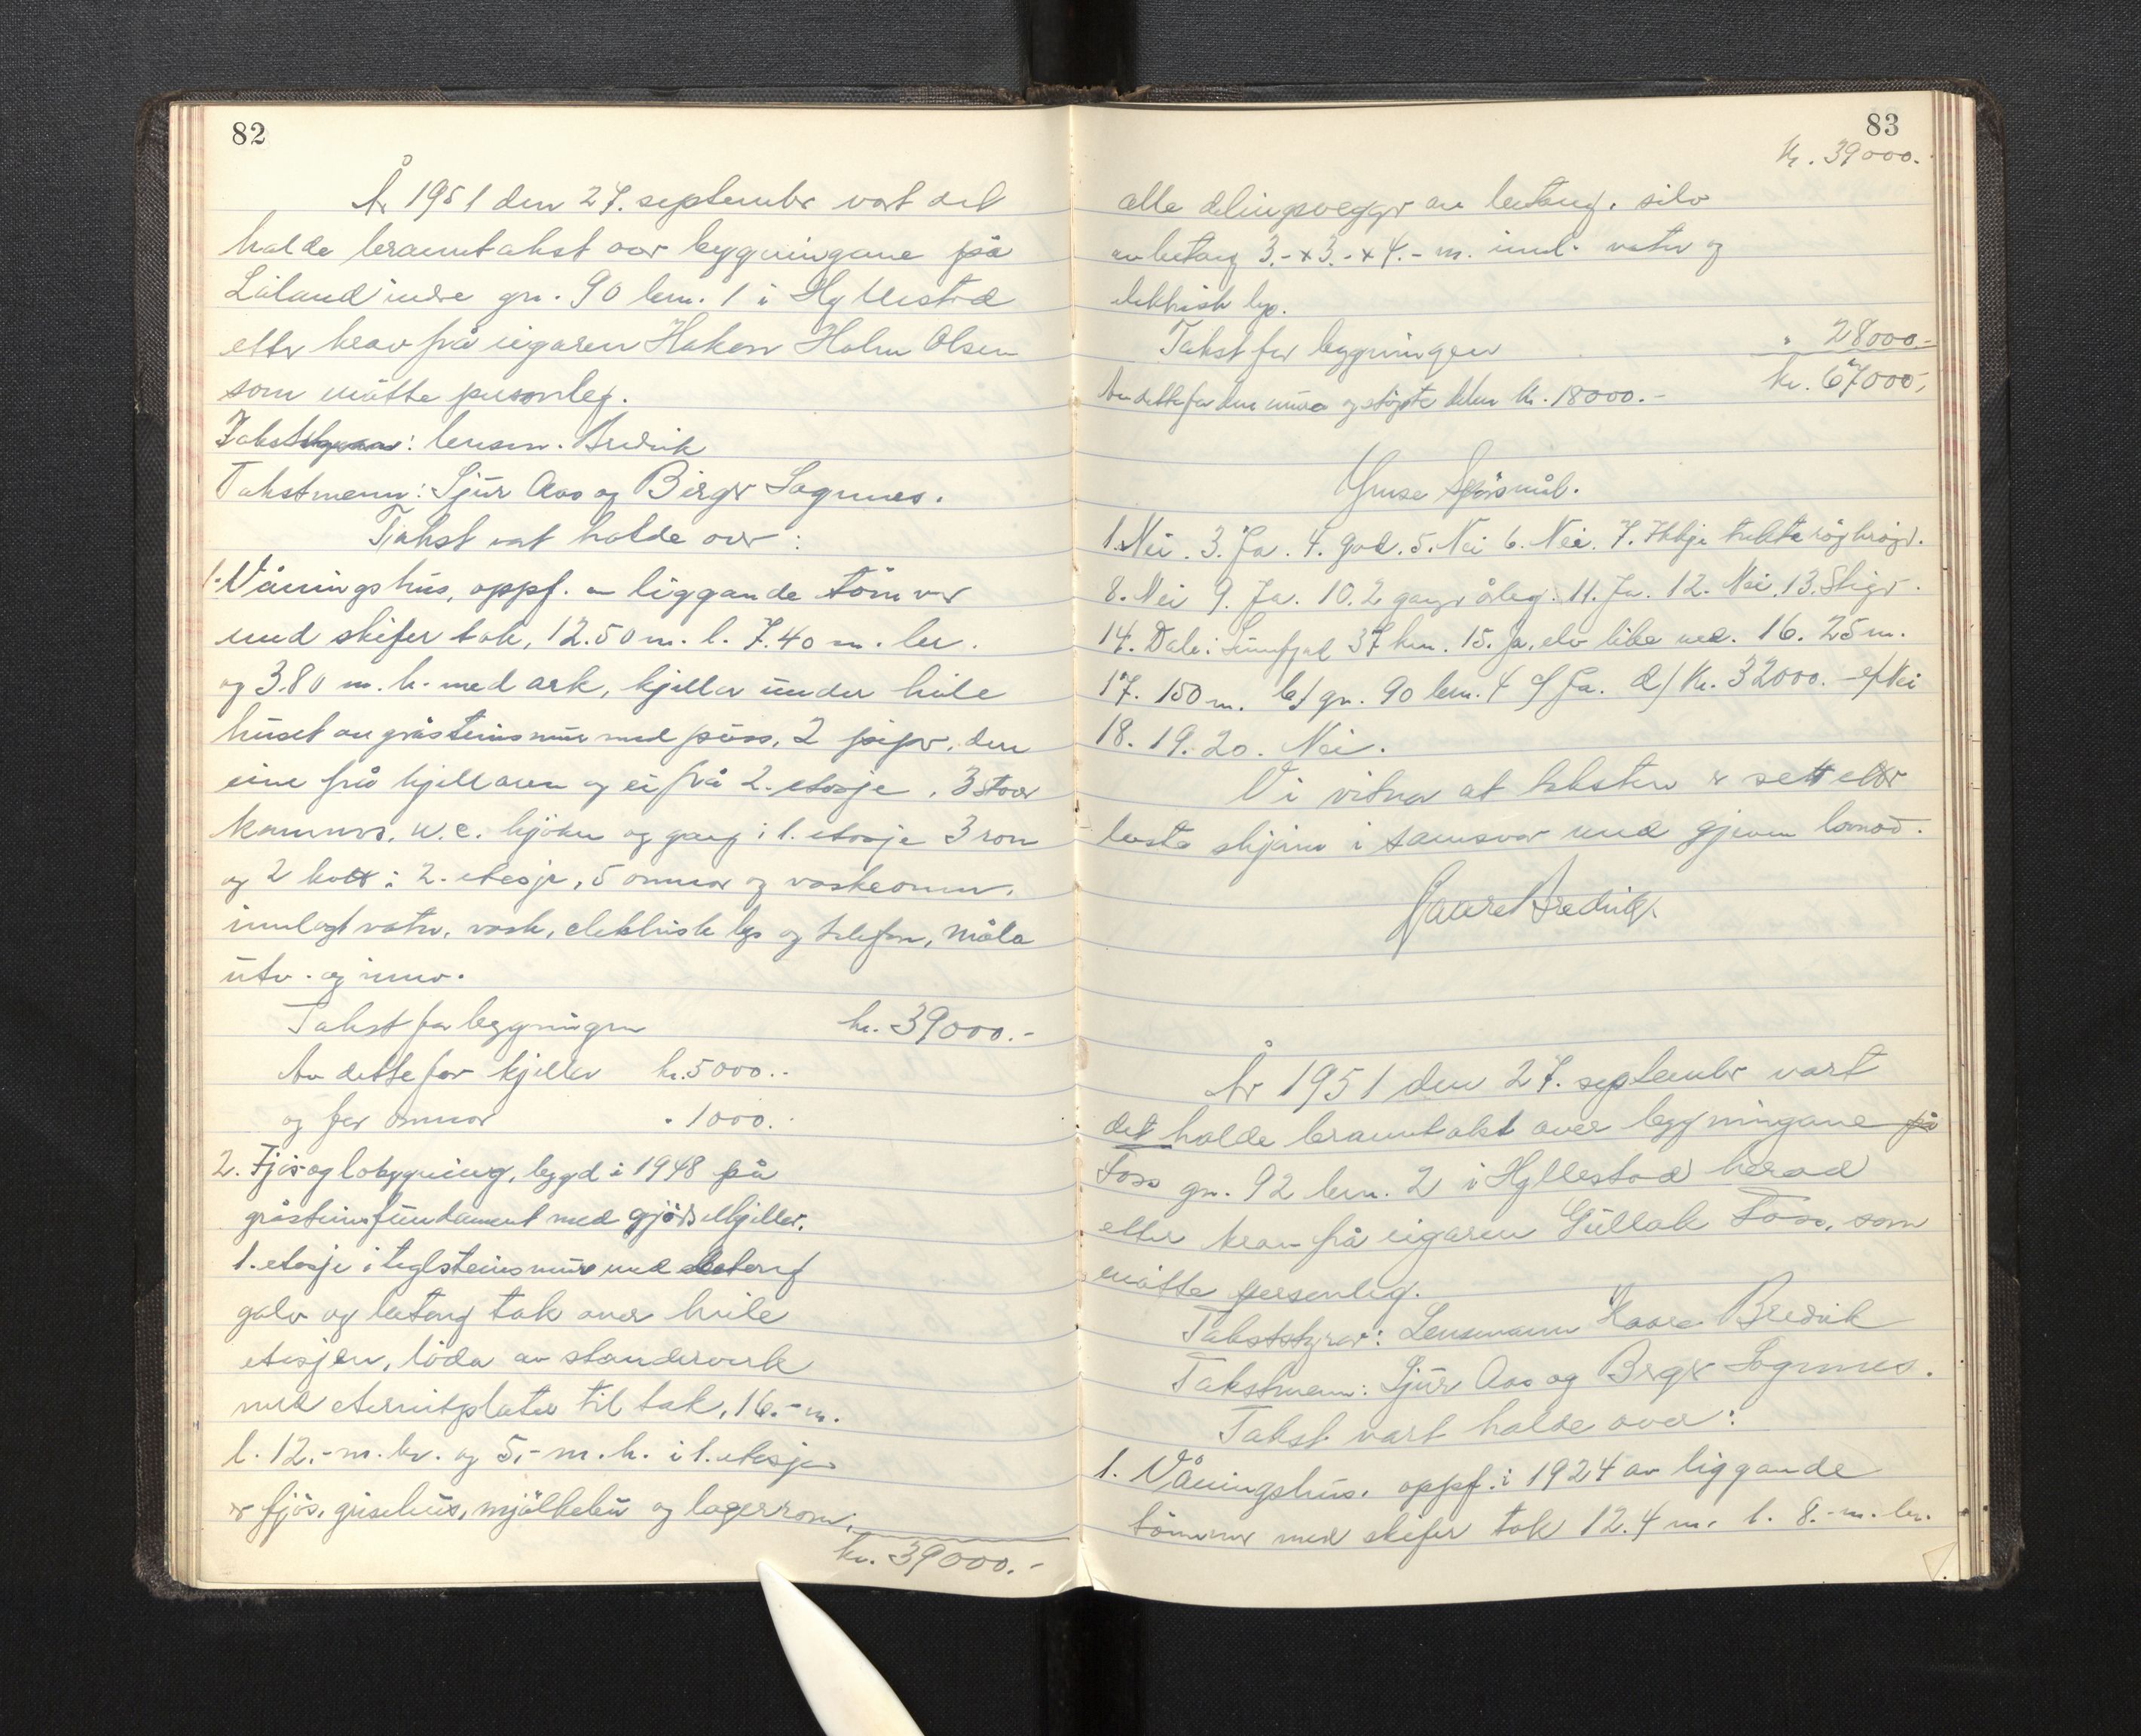 82
År 1951 den 27. september vart det
halde branntakst over bygningane på
Låland indre gn. 90 brn. 1 i Hyllestad
etter krav frå eigaren Hakon Holm Olsen
som møtte personleg.
Takst : lensm. Bredvik
Takstmenn: Sjur Aas og Birger Sognnes.
Takst vart halde over:
1. Våningshus, oppf. av liggande tømmer
med skifer tak, 12.50 m. l. 7.40 m. br.
og 3.80 m. h. med ark, kjellar under heile
huset av gråsteinsmur med puss, 2 piper, den
eine frå kjellaren og ei frå 2. etasje, 3 stover
kammers, w.c. kjøken og gang i 1. etasje 3 rom
og 2 kott i 2. etasje, 5 omnar og vaskeomn,
innlagt vatn, vask, elektrisk lys og telefon, måla
utv. og innv.
Takst for bygningen kr. 39000.-
Av dette for kjellar kr. 5000.-
og for omnar " 1000.-
2. Fjøs og løbygning, bygd i 1948 på
gråsteinsfundament med gjødselkjellar.
1. etasje i teglsteinsmur med betong
golv og betong tak over heile
etasjen, løda av standerverk
med eternitplater til tak, 16.- m.
l. 12.- m. br. og 5.- m. h. i 1. etasje
er fjøs, grisehus, mjølkebu og lagerrom.
kr. 39000.-
83
kr. 39000.-
alle delingsvegger av betong. silo
av betong 3.- x 3.- x 4.- m. innl. vatn og
elektrisk lys.
Takst for bygningen " 28000.-
Av dette for den mura og støypte delen kr. 18000.- kr. 67000,-
Ymse Spørsmål.
1. Nei. 3. Ja. 4. god. 5. Nei 6. Nei. 7. Ikkje tekte røykrøyr.
8. Nei 9. Ja. 10. 2 gonger årleg. 11. Ja. 12. Nei. 13. Stiger.
14. Dale i Sunnfjord 37 km. 15. Ja, elv like ved. 16. 25 m.
17. 150 m. b/ gn. 90 brn. 4 c/ Ja. d/ Kr. 32000. - e/ Nei
18. 19. 20. Nei.
Vi vitnar at taksten er sett etter
beste skjønn i samsvar med gjeven lovnad.
Kaare Bredvik.
År 1951 den 27. september vart
det halde branntakst over bygningane på
Foss gn. 92 brn. 2 i Hyllestad herad
etter krav frå eigaren Gullak Foss, som
møtte personleg.
Takststyrar: Lensmann Kaare Bredvik
Takstmenn: Sjur Aas og Birger Sognnes.
Takst vart halde over:
1. Våningshus. oppf. i 1924 av liggande
tømmer med skifer tak 12.4 m. l. 8.- m. br.